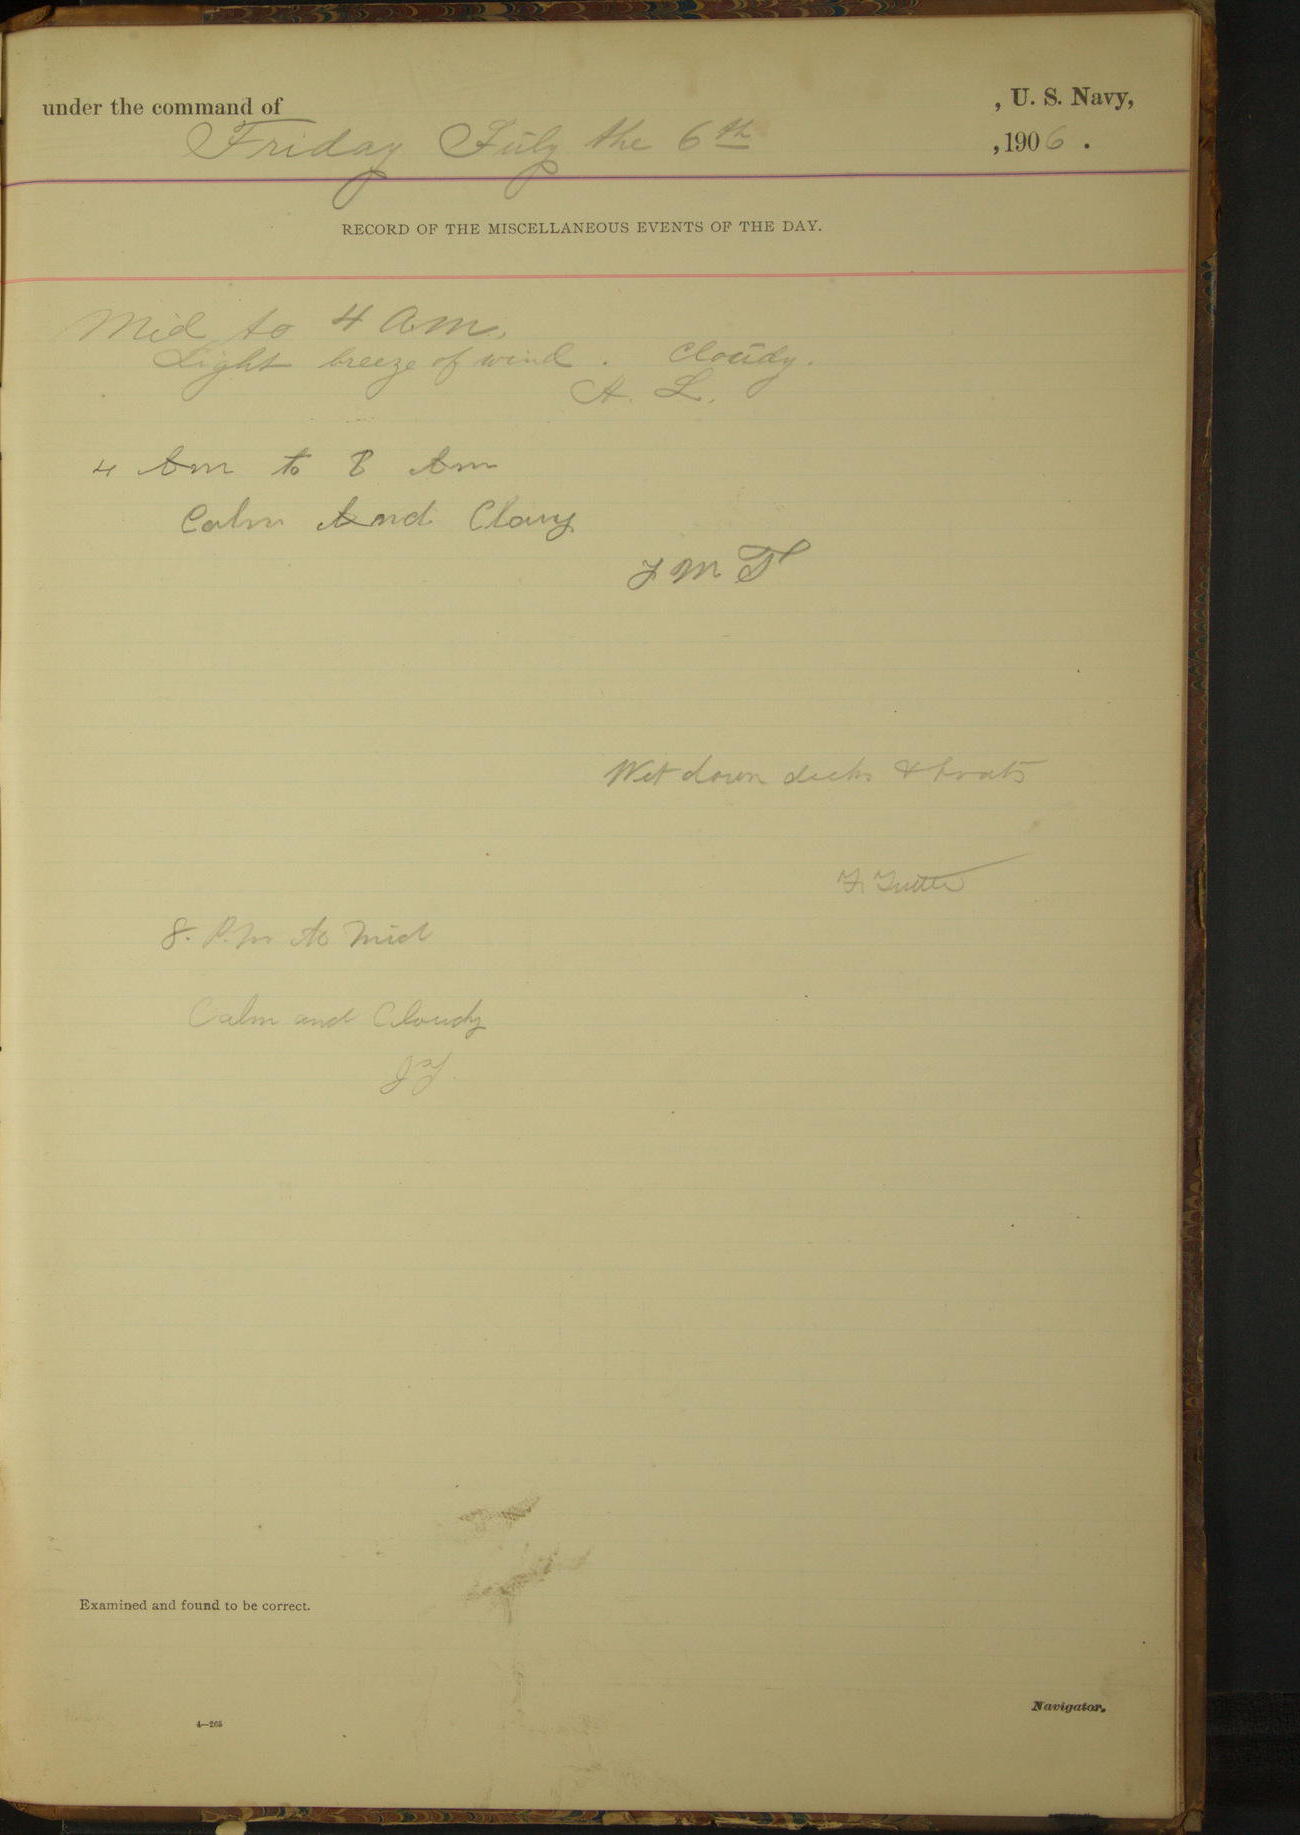 under the command of , U. S. Navy,
Friday July the 6th , 1906 .
RECORD OF THE MISCELLANEOUS EVENTS OF THE DAY.
Mid to 4 am.
Light breeze of wind . Cloudy.
A. L.
4 Am to 8 Am
Calm And Clouy
Wet down decks & boats
8. P.m to Mid
Calm and Cloudy
Examined and found to be correct.
Navigator.
4—265